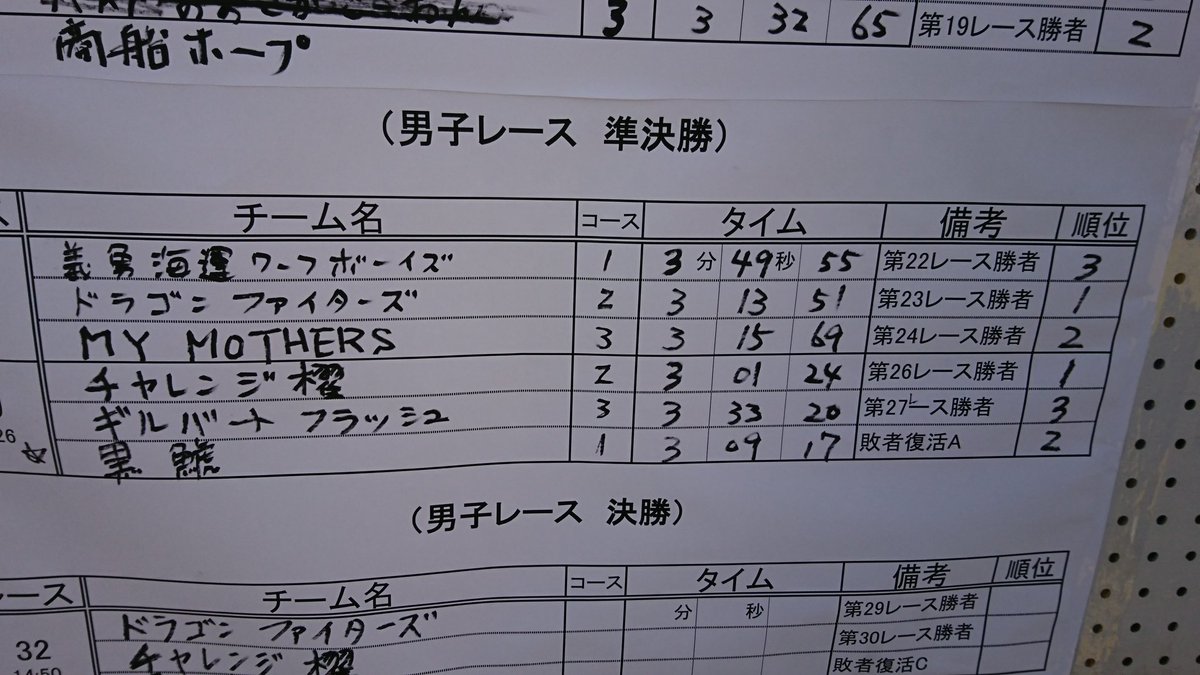 3 3 32 65 第19レース勝者 2
商船ホープ
（男子レース 準決勝）
チーム名 コース タイム 備考 順位
義勇海運ワーフボーイズ 1 3分 49秒 55 第22レース勝者 3
ドラゴンファイターズ 2 3 13 51 第23レース勝者 1
MY MOTHERS 3 3 15 69 第24レース勝者 2
チャレンジ櫂 2 3 01 24 第26レース勝者 1
ギルバートフラッシュ 3 3 33 20 第27レース勝者 3
26 ☆ 黒鯱 1 3 09 17 敗者復活A 2
（男子レース 決勝）
レース チーム名 コース タイム 備考 順位
ドラゴンファイターズ 分 秒 第29レース勝者
32 チャレンジ櫂 第30レース勝者
14:50 敗者復活C